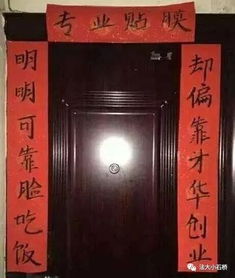 专业贴膜
明明可靠脸吃饭
却偏靠才华创业
法大小石桥